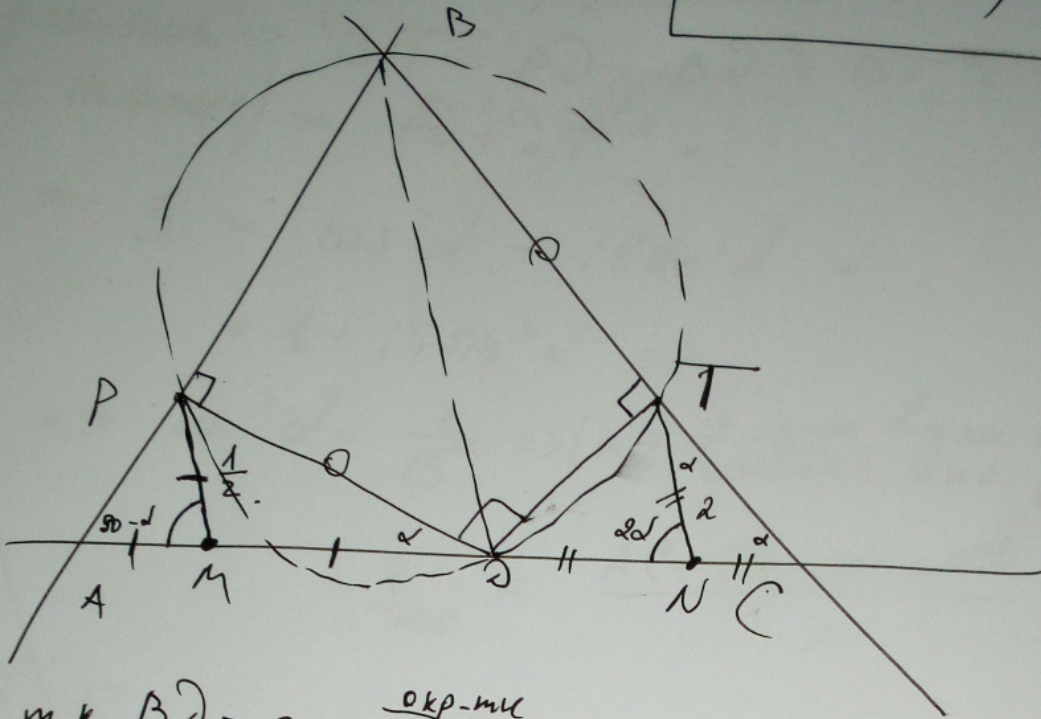 B
P
T
1/2
α
2
90-α
α
2α
α
A
M
D
N
C
т.к. BD -
окр-ти